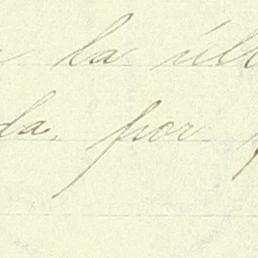 la últ
da, por